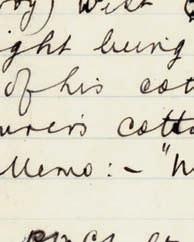 by) West
ight being
of his cot
urer's cotta
Memo:- "W